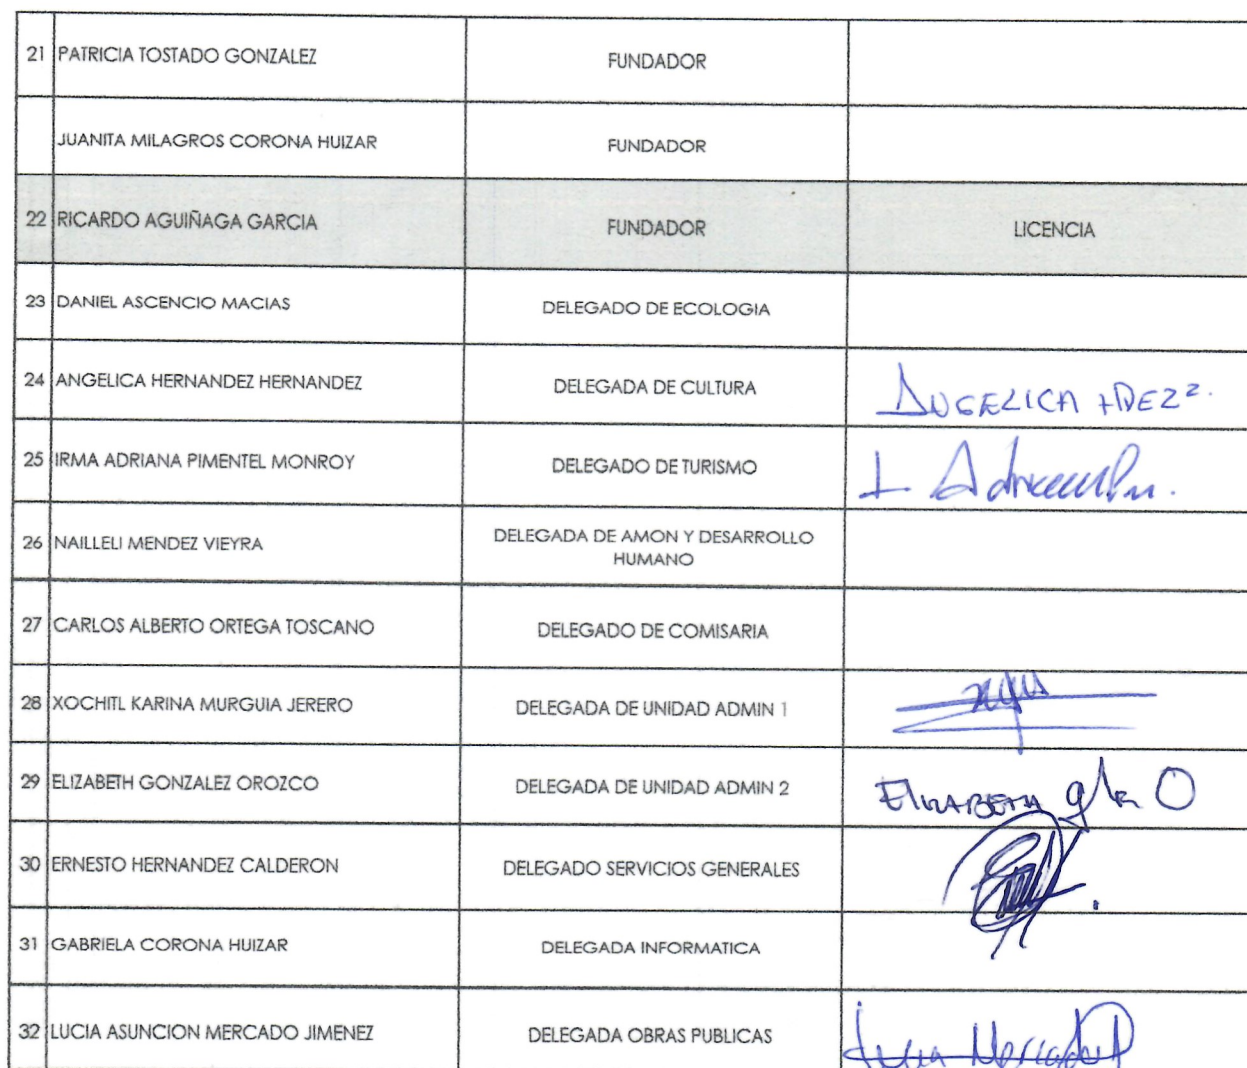 21 PATRICIA TOSTADO GONZALEZ FUNDADOR
JUANITA MILAGROS CORONA HUIZAR FUNDADOR
22 RICARDO AGUIÑAGA GARCIA FUNDADOR LICENCIA
23 DANIEL ASCENCIO MACIAS DELEGADO DE ECOLOGIA
24 ANGELICA HERNANDEZ HERNANDEZ DELEGADA DE CULTURA ANGELICA HDEZ
25 IRMA ADRIANA PIMENTEL MONROY DELEGADO DE TURISMO
26 NAILLELI MENDEZ VIEYRA DELEGADA DE AMON Y DESARROLLO
HUMANO
27 CARLOS ALBERTO ORTEGA TOSCANO DELEGADO DE COMISARIA
28 XOCHITL KARINA MURGUIA JERERO DELEGADA DE UNIDAD ADMIN 1
29 ELIZABETH GONZALEZ OROZCO DELEGADA DE UNIDAD ADMIN 2 ELIZABETH
30 ERNESTO HERNANDEZ CALDERON DELEGADO SERVICIOS GENERALES
31 GABRIELA CORONA HUIZAR DELEGADA INFORMATICA
32 LUCIA ASUNCION MERCADO JIMENEZ DELEGADA OBRAS PUBLICAS Lucia Mercado